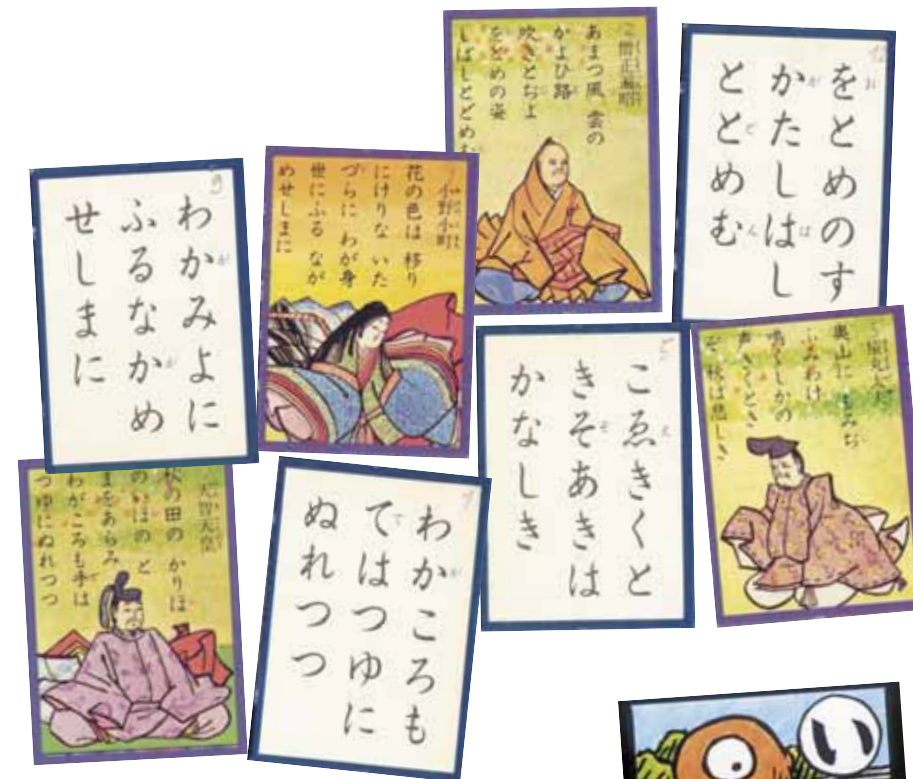 僧正遍昭
あまつ風 雲の
かよひ路
吹きとぢよ
をとめの姿
しばしとどめむ
をとめのす
かたしはし
ととめむ
わかみよに
ふるなかめ
せしまに
小野小町
花の色は 移り
にけりな いた
づらに わが身
世にふる なが
めせしまに
こゑきくと
きそあきは
かなしき
猿丸大夫
奥山に もみぢ
ふみわけ
鳴くしかの
声きくとき
ぞ 秋は悲しき
天智天皇
秋の田の かりほ
のいほの と
まをあらみ
わがころも手は
つゆにぬれつつ
わかころも
てはつゆに
ぬれつつ
い